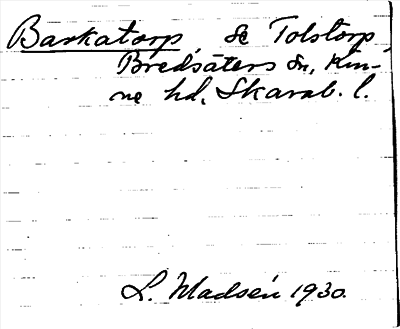 Barkatorp, se Tolstorp,
Bredsäters sn, Kin-
ne hd, Skarab. l.
L. Madsén 1930.